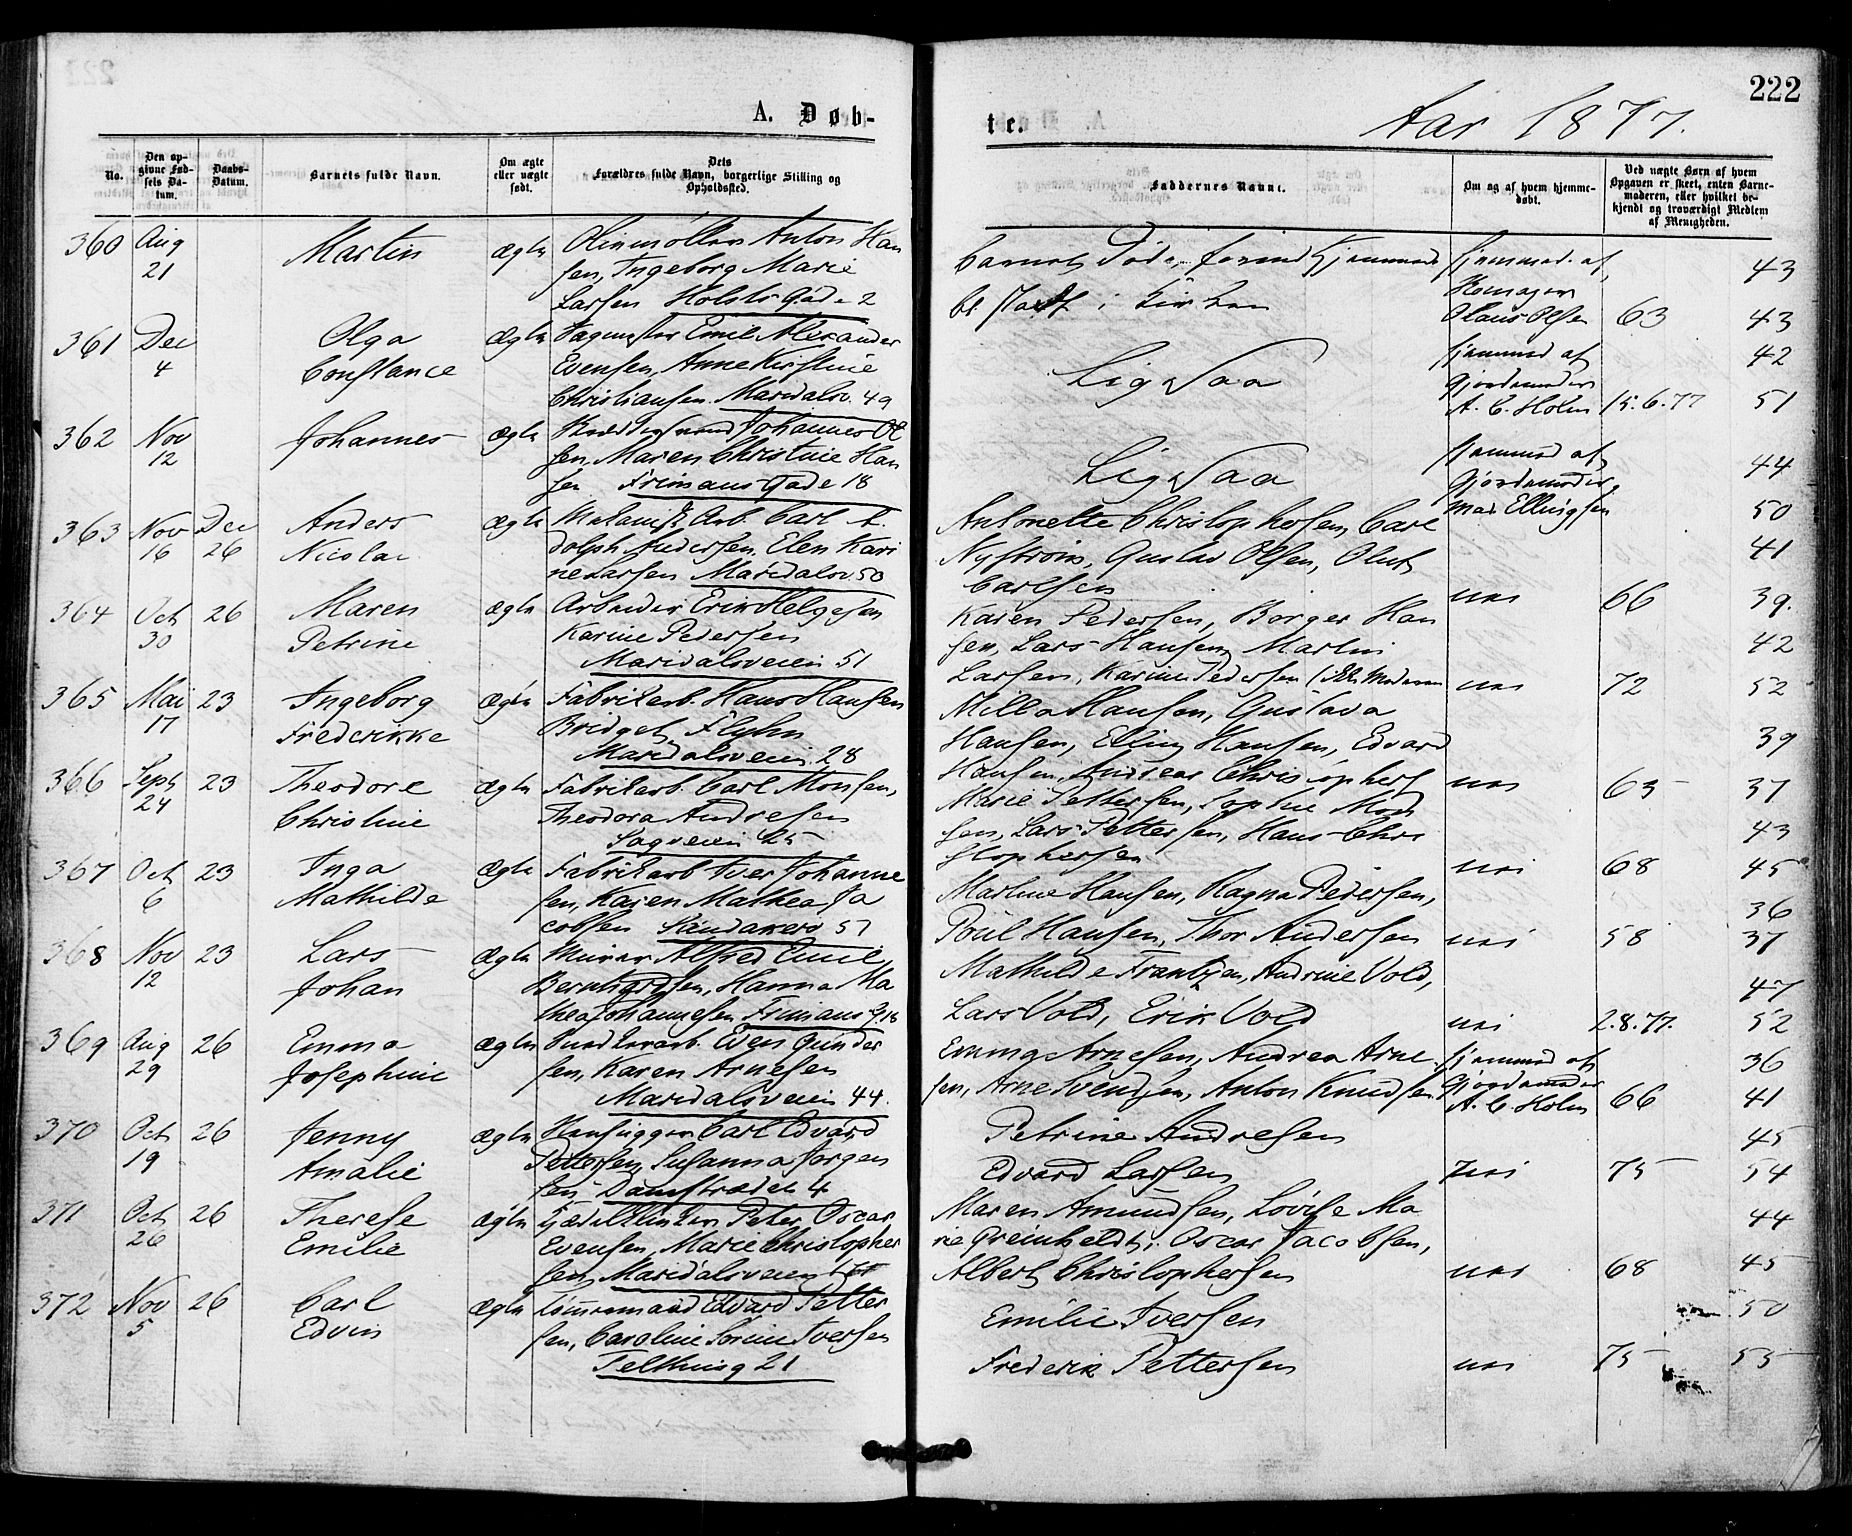 222
A. Døb-
te.
Aar 1877.
No.
Den op-
givne Fød-
sels Da-
tum.
Daabs-
Datum.
Barnets fulde Navn.
Om ægte
eller uægte
født.
Dets
Forældres fulde Navn, borgerlige Stilling og
Opholdssted.
Faddernes Navne.
Om og af hvem hjemme-
døbt.
Ved uægte Børn af hvem
Opgaven er skeet, enten Barne-
moderen, eller hvilket be-
kjendt og troværdigt Medlem
af Menigheden.
360 Aug
21
Martin
ægte
Oliemøller Anton Han
sen, Ingeborg Marie
Larsen Holsts Gade 2
Barnet døde, forind Hjemmed
bl. stadf i Kirken
hjemmed. af
Olaus Olsen
63
43
43
361 Dec
4
Olga
Constance
ægte
Bagmester Emil Alexander
Evensen, Anne Kirstine
Christiansen. Maridalsv. 49
Ligesaa
hjemmed af
Gjordemoder
A. C. Holm
15.6.77
42
51
362 Nov
12
Johannes
ægte
Johannes Ol
sen, Maren Christine Han
sen Frimans Gade 18
Ligesaa
hjemmed af
Gjordemoder
Mar. Ellingsen
44
50
363 Nov
16
Dec
26
Anders
Nicolai
ægte
Mekanisk Arb. Carl A
dolph Andersen, Elen Kari
ne Larsen Maridalsv. 50
Antonette Christophersen, Carl
Nystrøm, Gustav Olsen, Oluf
Carlsen
nei
66
41
39.
364 Oct
30
26
Maren
Petrine
ægte
Arbeider Erik Helgesen
Karine Pedersen
Maridalsveien 51
Karen Pedersen, Borger Han
sen, Lars Hansen, Martin
Larsen, Karine Pedersen
nei
72
42
52
365 Mai
17
23
Ingeborg
Frederikke
ægte
Fabrikarb. Hans Hansen
Bridget Flyhn
Maridalsveien 28
Milla Hansen, Gustava
Hansen, Elling Hansen, Edvard
Hansen, Andreas Christophers
nei
63
39
37
366 Sept
24
23
Theodore
Christine
ægte
Fabrikarb. Carl Monsen,
Theodora Andresen
Sagveien 25
Marie Pettersen, Sophie Mon
sen, Lars Pettersen, Hans Chri
stophersen
nei
68
43
45
367 Oct
6
23
Inga
Mathilde
ægte
Fabrikarb Iver Johanne
sen, Karen Mathea Ja
cobsen Sandakerv 57
Martine Hansen, Ragna Pedersen,
Poul Hansen, Thor Andersen
nei
58
36
37
368 Nov
12
23
Lars
Johan
ægte
Murer Alfred Emil
Bernhardsen, Hanna Ma
thea Johannesen Frimans G. 18
Mathilde Frantzen, Andrine Vold,
Lars Vold, Erik Vold
nei
2.8.77.
47
52
369 Aug
29
26
Emma
Josephine
ægte
Even Gunder
sen, Karen Arnesen
Maridalsveien 44.
Emma Arnesen, Andrea Arne
sen, Arne Svendsen, Anton Knudsen
hjemmed af
Gjordemoder
A. C. Holm
66
36
41
370 Oct
19
26
Jenny
Amalie
ægte
Carl Edvard
Pettersen, Susanna Jørgen
sen Damstrædet 4
Petrine Andresen
Edvard Larsen
nei
75
45
54
371 Oct
26
26
Therese
Emilie
ægte
Peter Oscar
Evensen, Marie Christopher
sen, Maridalsveien
Maren Amundsen, Lovise Ma
rie Greinheldt, Oscar Jacobsen,
Albert Christophersen
nei
68
44
45
372 Nov
5
26
Carl
Edvin
ægte
Tømmermand Edvard Petter
sen, Caroline Sørine Iversen
Telthusg 21
Emilie Iversen
Frederik Pettersen
nei
75
50
55